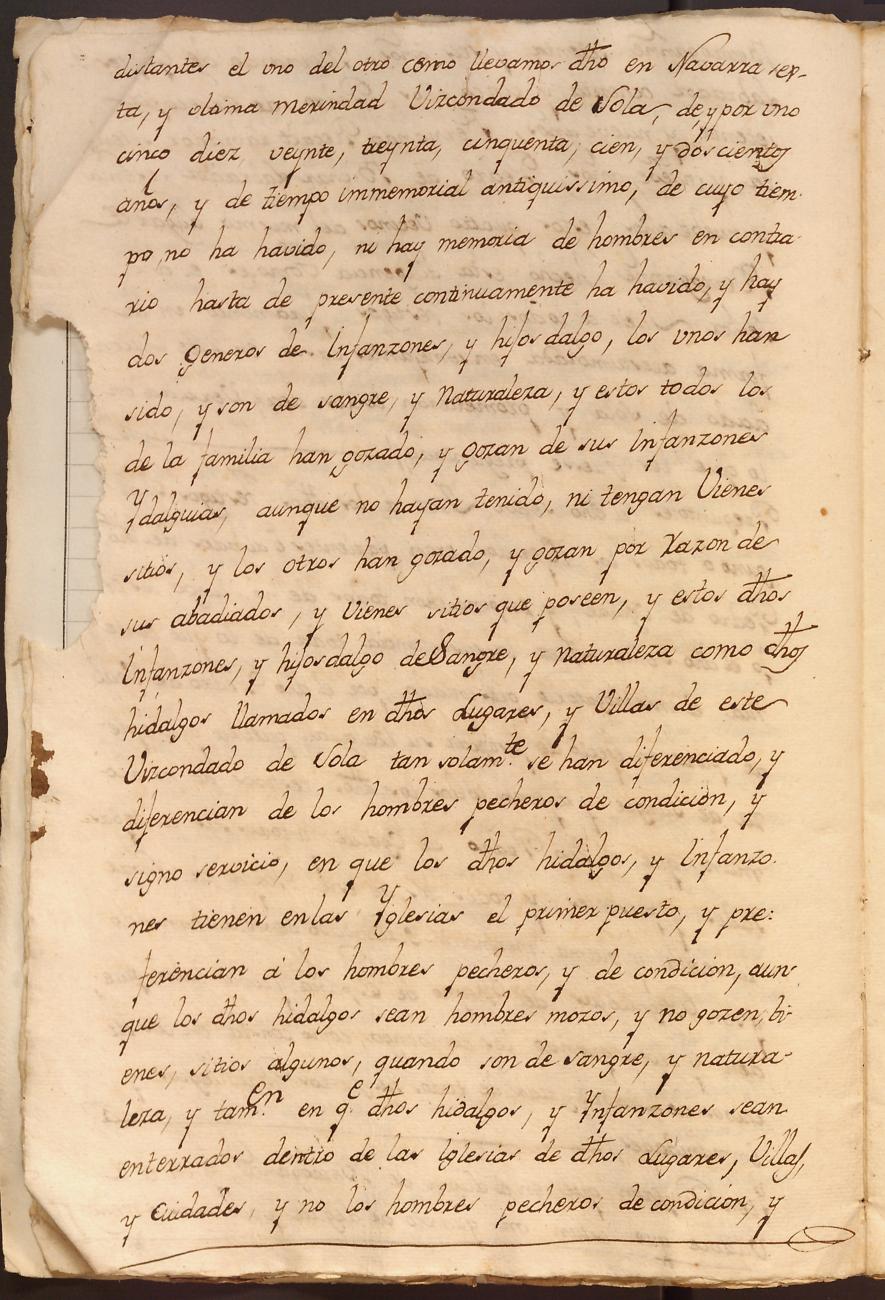 distantes el vno del otro como llevamos dho en Navarra sex-
ta, y vltima merindad Vizcondado de Sola, de, y por vno
cinco diez veynte, treynta, cinquenta, cien, y doscientos
años, y de tiempo immemorial antiquissimo, de cuyo tiem-
po, no ha havido, ni hay memoria de hombres en contra-
rio hasta de presente continuamente ha havido, y hay
dos generos de Infanzones, y hijosdalgo, los vnos han
sido, y son de sangre, y Naturaleza, y estos todos los
de la familia han gozado, y gozan de sus Infanzones
Ydalguias, aunque no hayan tenido, ni tengan Vienes
sitios, y los otros han gozado, y gozan por razon de
sus abadiados, y Vienes sitios que poseen, y estos dhos
Infanzones, y hijosdalgo de Sangre, y naturaleza como dhos
hidalgos llamados en dhos Lugares, y Villas de este
Vizcondado de Sola tan solam.te se han diferenciado, y
diferencian de los hombres pecheros de condición, y
signo servicio, en que los dhos hidalgos, y Infanzo-
nes tienen en las Yglesias el primer puesto, y pre:
ferencian á los hombres pecheros, y de condición, aun-
que los dhos hidalgos sean hombres mozos, y no gozen, bi-
enes, sitios algunos, quando son de sangre, y natura-
leza, y tam.en en qe dhos hidalgos, y Ynfanzones sean
enterrados dentro de las Iglesias de dhos Lugares, Villas,
y Ciudades, y no los hombres pecheros de condición, y